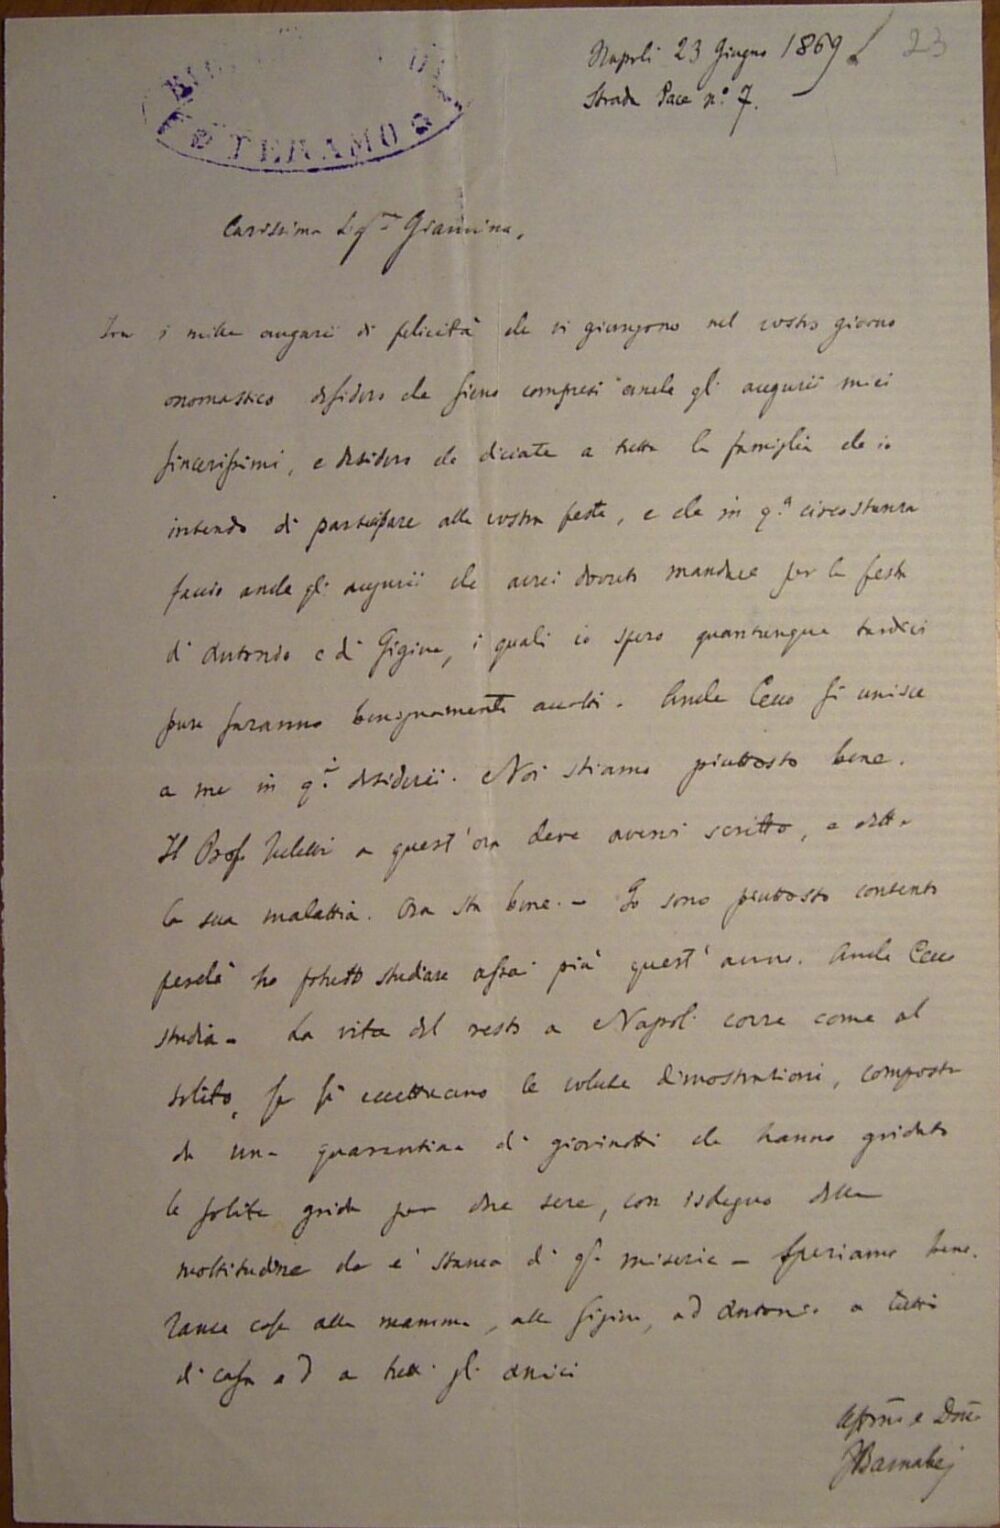 Napoli 23 Giugno 1869
23
Strada Pace n.º 7.
TERAMO
Carissima Sigra Giannina,
Tra i mille augurii di felicità che vi giungono nel vostro giorno
onomastico desidero che sieno compresi anche gli augurii miei
sincerissimi, e desidero che diciate a tutta la famiglia che io
intendo di partecipare alla vostra festa, e che in q.a circostanza
faccio anche gli augurii che avrei dovuto mandare per la festa
di Antonio e di Gigina, i quali io spero quantunque tardivi
pure saranno benignamente accolti. Anche Cecco si unisce
a me in q.i desiderii. Noi stiamo piuttosto bene.
Il Prof. a quest'ora deve avervi scritto, e detta
la sua malattia. Ora sta bene. – Io sono piuttosto contento
perchè ho potuto studiare assai più quest'anno. Anche Cecco
studia – La vita del resto a Napoli corre come al
solito, se si eccettuano le volute dimostrazioni, composte
da una quarantina di giovinotti che hanno gridato
le solite grida per due sere, con isdegno della
moltitudine che è stanca di qs. miserie – Speriamo bene.
Tante cose alla mamma, alla Gigina, ad Antonio a tutti
di casa ad a tutti gli amici
Affmo e Dmo
FBarnabei